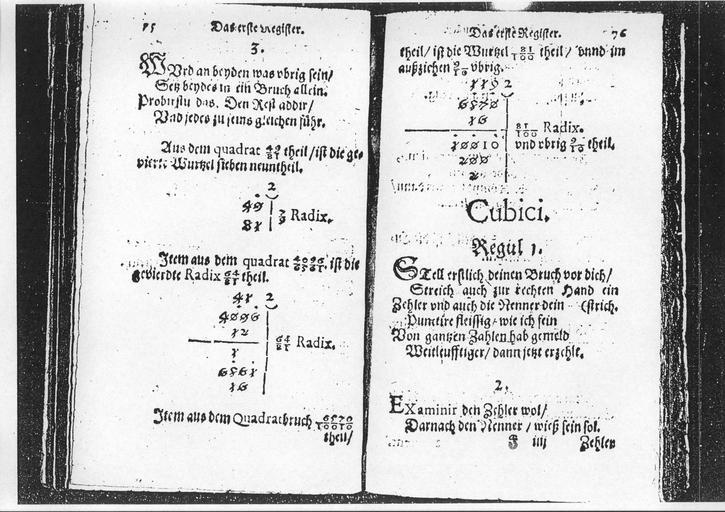 75 Das erste Register.
3.
Wurd an beyden was vbrig sein/
Setz beydes in ein Bruch allein.
Probirstu das. Den Rest addir/
Vnd jedes zu seins gleichen führ.
Aus dem quadrat 49/81 theil/ ist die ge-
vierte Wurtzel sieben neuntheil.
2
49
81 7/9 Radix.
Item aus dem quadrat 4096/6561. ist die
gevierdte Radix 64/81 theil.
41 2
4096
12
1 64/81 Radix.
6561
16
Item aus dem Quadratbruch 6570/10010
theil/
Das erste Register. 76
theil/ ist die Wurtzel 81/100 theil/ vnnd im
außziehen 9/10 vbrig.
119 2
6570
16
81/100 Radix.
10010 vnd vbrig 9/10 theil.
200
2
Cubici.
Regul 1.
STell erstlich deinen Bruch vor dich/
Streich auch zur rechten Hand ein
Zehler vnd auch die Nenner dein (strich.
Punctire fleissig/ wie ich sein
Von gantzen Zahlen hab gemeld
Weitleufftiger/ dann jetzt erzehlt.
2.
EXaminir den Zehler wol/
Darnach den Nenner/ wieß sein sol.
iiij Zehler